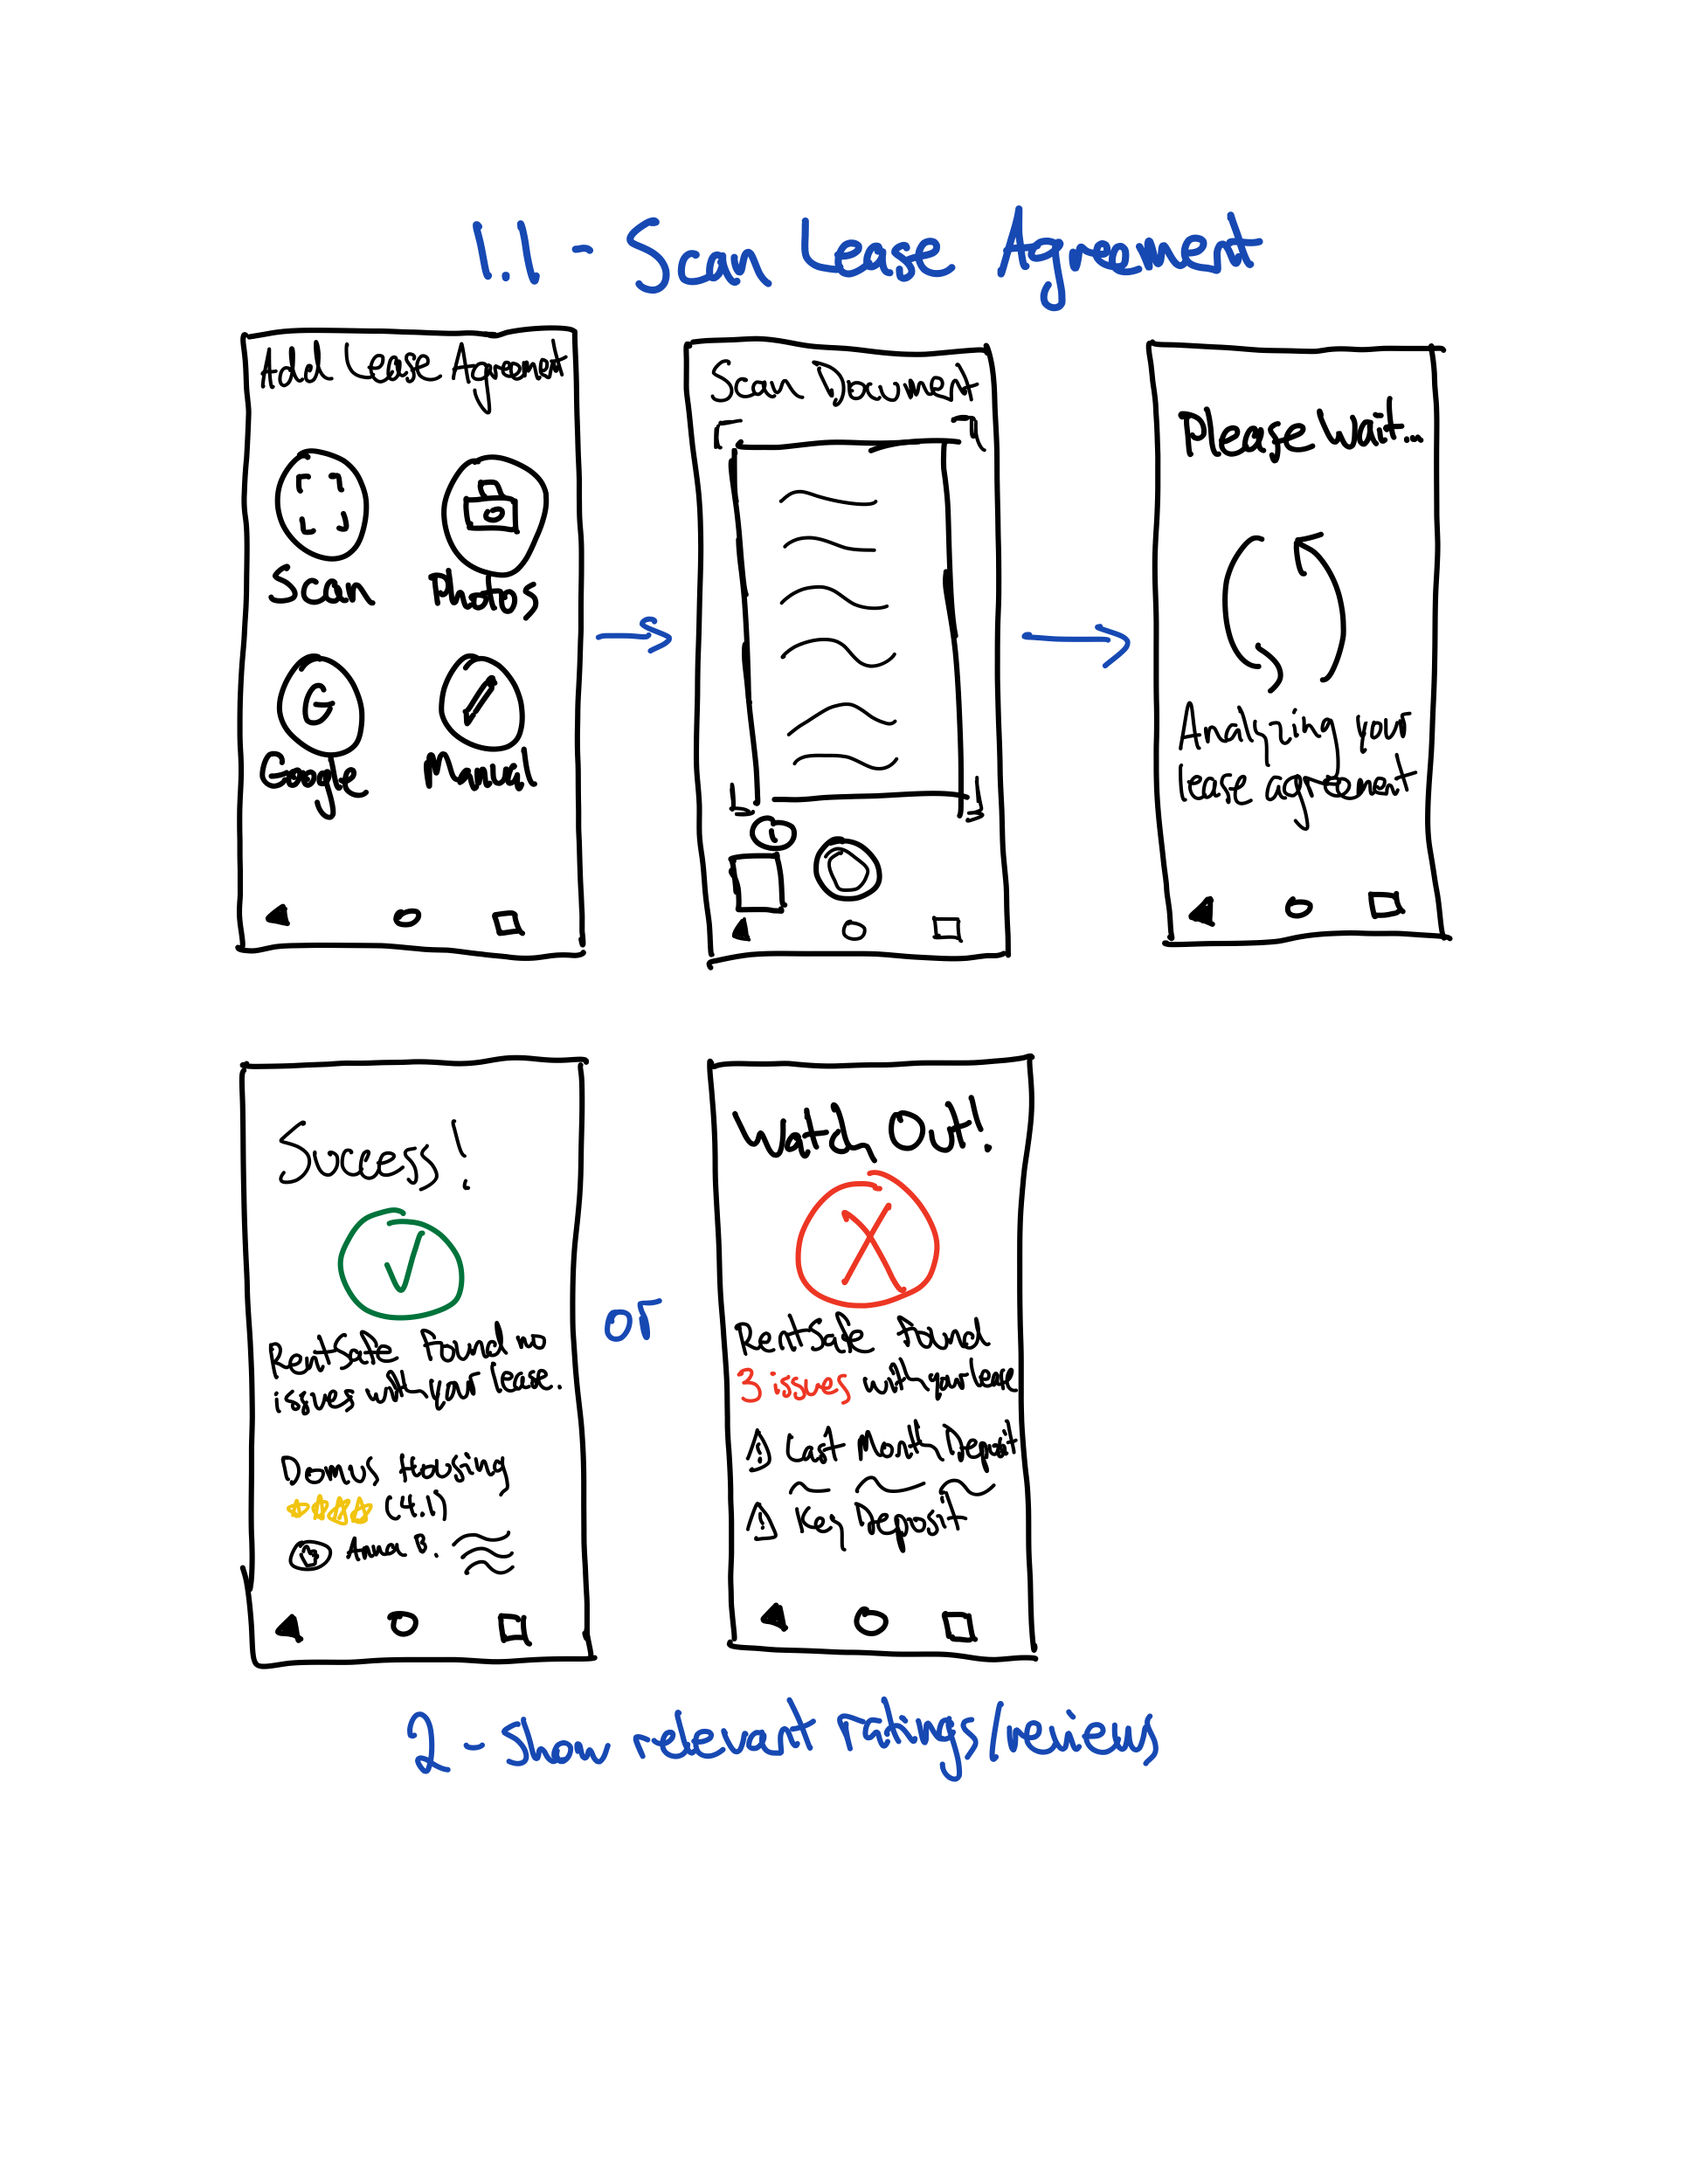 1.1 - Scan Lease Agreement
Add Lease Agreement
Scan
Photos
G
Google
Manual
Scan Document
1
Please wait...
Analyzing your
lease agreement
Success!
RentSafe found no
issues with your lease.
Domus Housing
(4.1)
Anna B.
or
Watch Out!
RentSafe found
3 issues with your lease
Last Month Deposit
Key Deposit
2 - Show relevant ratings/reviews